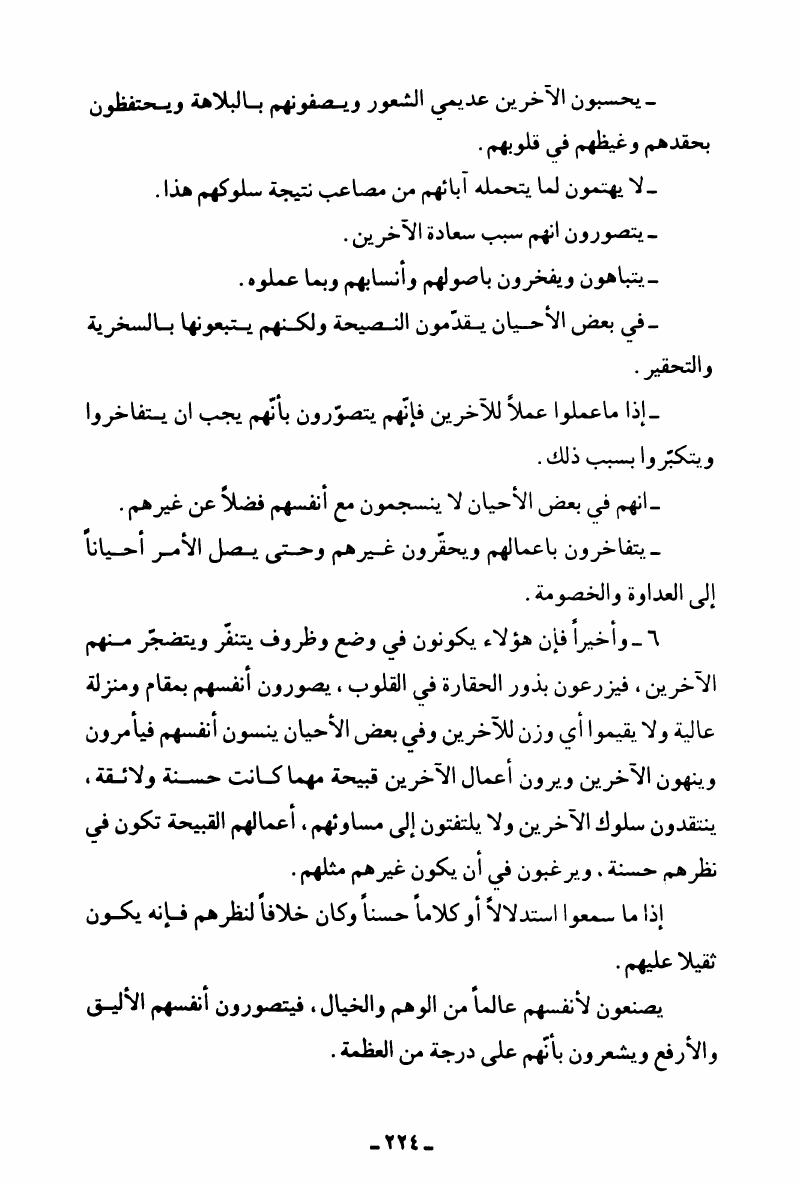 ـ يحسبون الآخرين عديمي الشعور ويصفونهم بالبلاهة ويحتفظون
بحقدهم وغيظهم في قلوبهم .
ـ لا يهتمون لما يتحمله آبائهم من مصاعب نتيجة سلوكهم هذا .
ـ يتصورون انهم سبب سعادة الآخرين .
ـ يتباهون ويفخرون باصولهم وأنسابهم وبما عملوه .
ـ في بعض الأحيان يقدّمون النصيحة ولكنهم يتبعونها بالسخرية
والتحقير .
ـ إذا ماعملوا عملاً للآخرين فإنّهم يتصوّرون بأنّهم يجب ان يتفاخروا
ويتكبّروا بسبب ذلك .
ـ انهم في بعض الأحيان لا ينسجمون مع أنفسهم فضلاً عن غيرهم .
ـ يتفاخرون باعمالهم ويحقّرون غيرهم وحتى يصل الأمر أحياناً
إلى العداوة والخصومة .
٦ ـ وأخيراً فإن هؤلاء يكونون في وضع وظروف يتنفّر ويتضجّر منهم
الآخرين ، فيزرعون بذور الحقارة في القلوب ، يصورون أنفسهم بمقام ومنزلة
عالية ولا يقيموا أي وزن للآخرين وفي بعض الأحيان ينسون أنفسهم فيأمرون
وينهون الآخرين ويرون أعمال الآخرين قبيحة مهما كانت حسنة ولائقة ،
ينتقدون سلوك الآخرين ولا يلتفتون إلى مساوئهم ، أعمالهم القبيحة تكون في
نظرهم حسنة . ويرغبون في أن يكون غيرهم مثلهم .
إذا ما سمعوا استدلالاً أو كلاماً حسناً وكان خلافاً لنظرهم فإنه يكون
ثقيلا عليهم .
يصنعون لأنفسهم عالماً من الوهم والخيال ، فيتصورون أنفسهم الأليق
والأرفع ويشعرون بأنّهم على درجة من العظمة .
ـ ٢٢٤ ـ